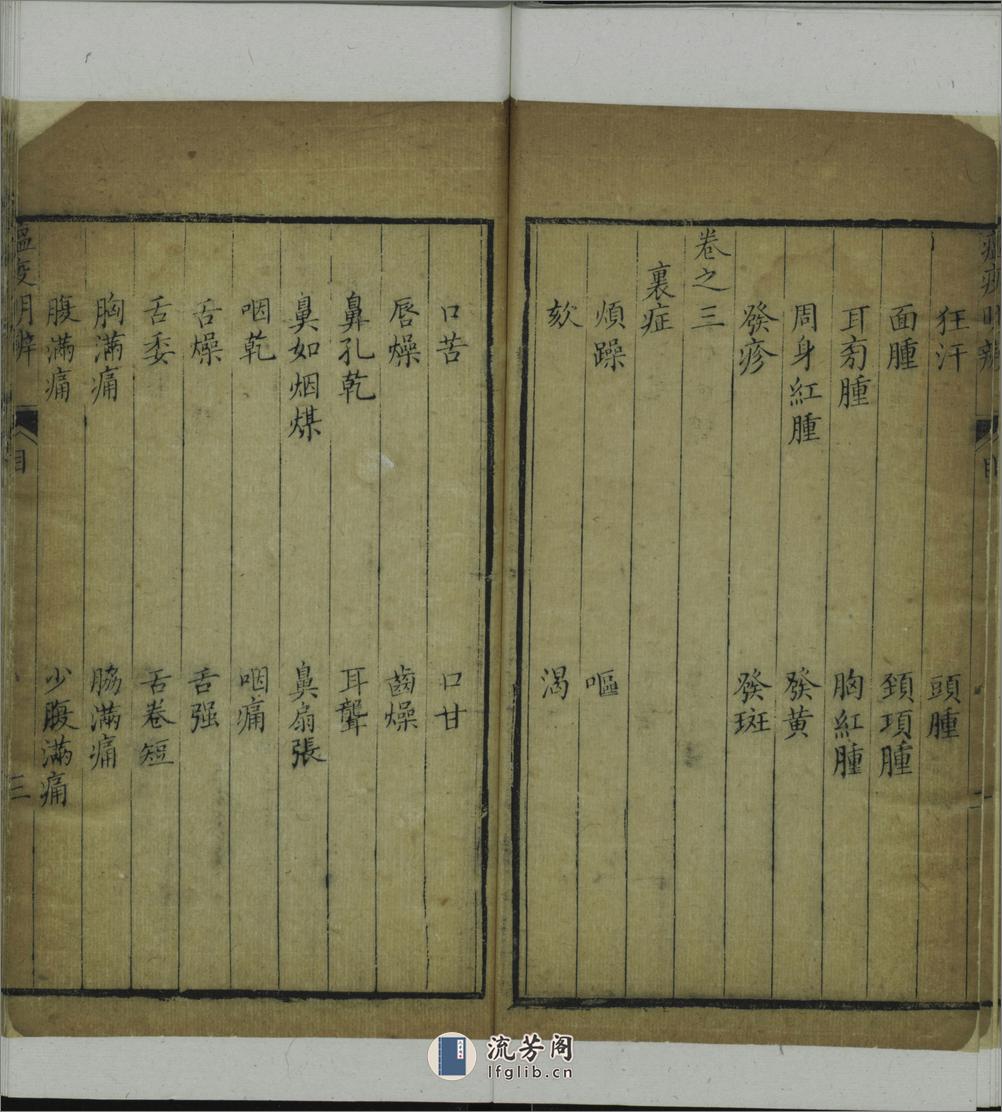 狂汗 頭腫
面腫 頚項腫
耳旁腫 胸紅腫
周身紅腫 發黃
發疹 發斑
卷之三
裏症
煩躁 嘔
欬 渴
口苦 口甘
唇燥 齒燥
鼻孔乾 耳聾
鼻如烟煤 鼻扇張
咽乾 咽痛
舌燥 舌强
舌委 舌卷短
胸滿痛 脇滿痛
腹滿痛 少腹滿痛
瘟疫明辨 目 三
流芳阁
lfglib.cn